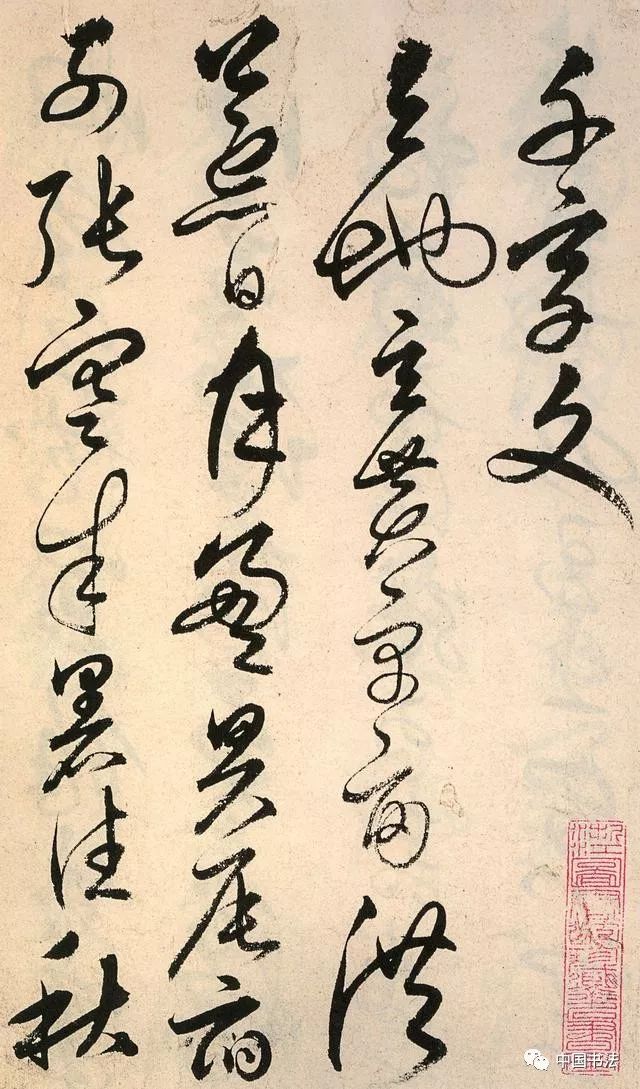 千字文
天地玄黄宇宙洪
荒日月盈昃辰宿
列张寒来暑往秋
中国书法